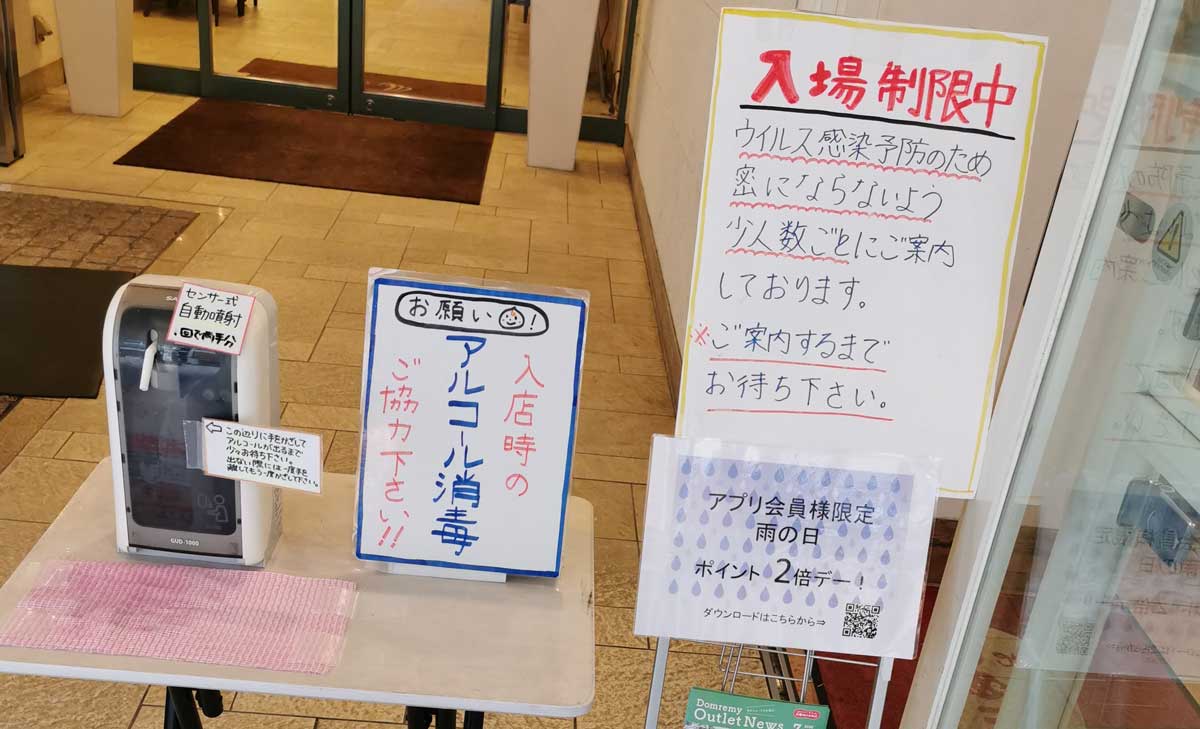 入場制限中
ウイルス感染予防のため
密にならないよう
少人数ごとにご案内
しております。
※ご案内するまで
お待ち下さい。
アプリ会員様限定
雨の日
ポイント 2倍デー!
ダウンロードはこちらから⇒
Domremy
Outlet News 7
お願い!
入店時の
アルコール消毒
ご協力下さい!!
センサー式
自動噴射
1回で両手分
⇦この辺りに手をかざして
アルコールが出るまで
少々お待ち下さい。
出ない際には一度手を
離してもう一度かざして下さい。
GUD-1000